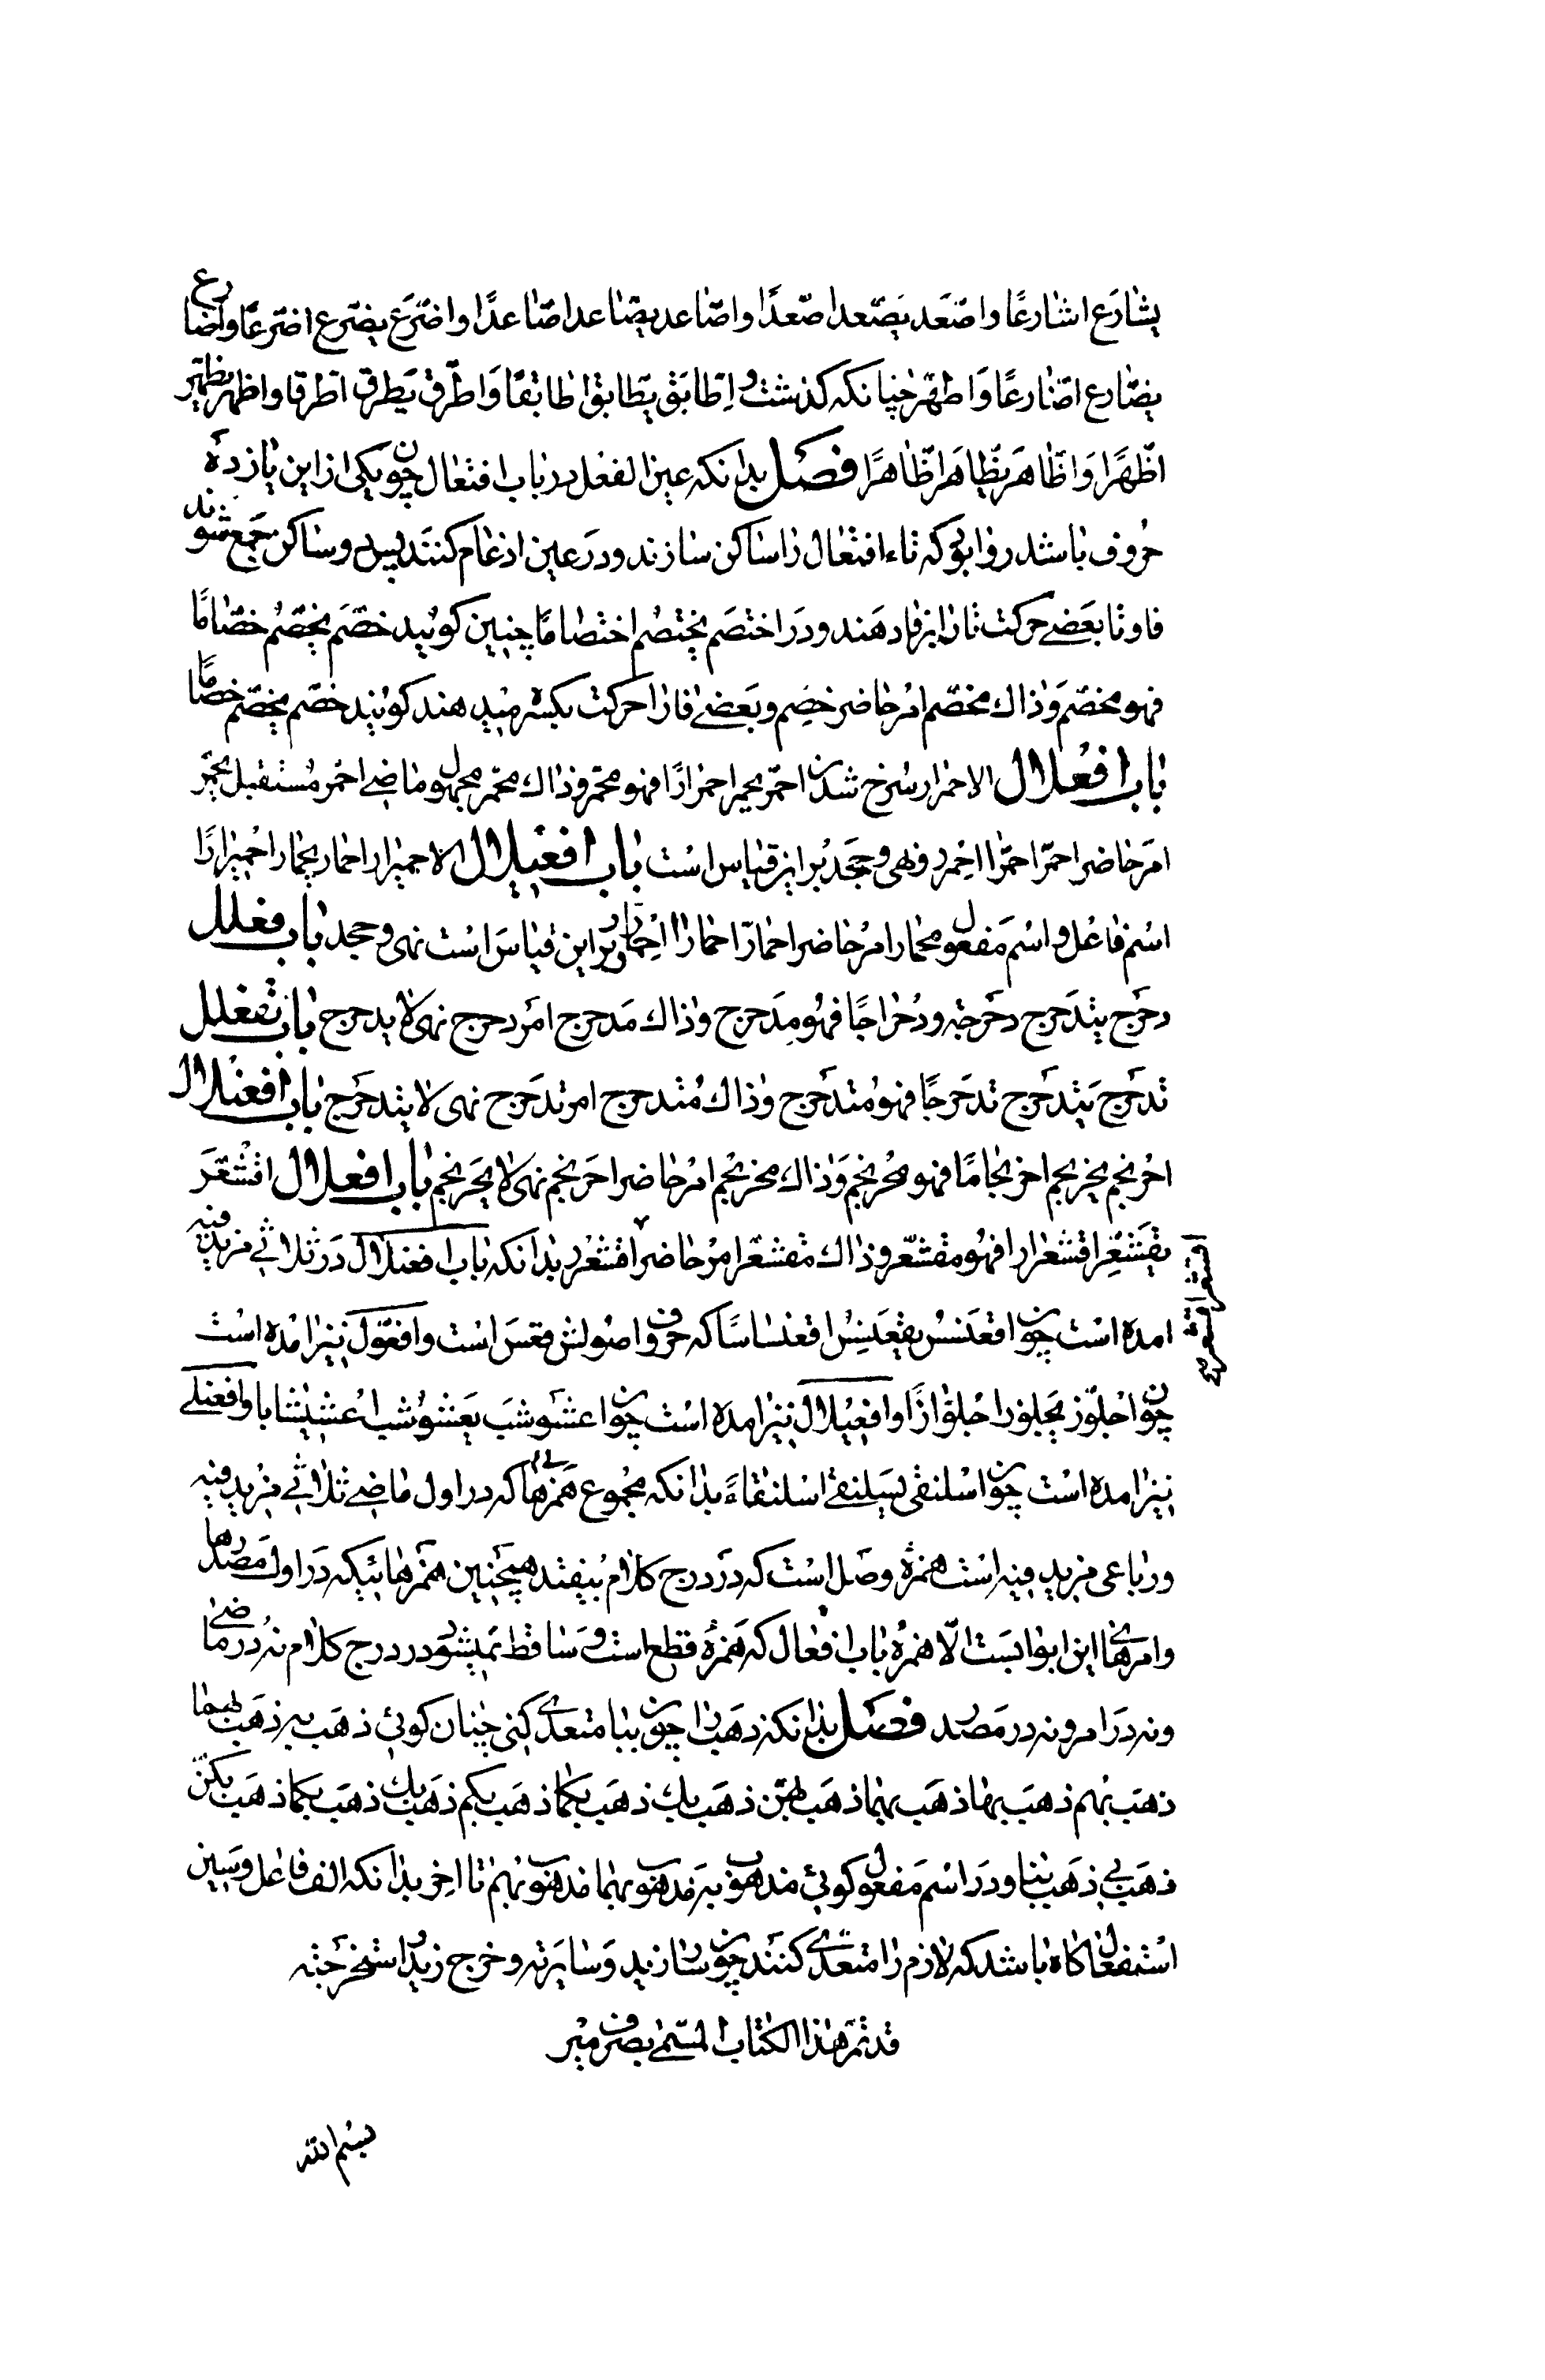 یشّارَع اشّارعًا واصّعَد یَصّعد اصّعدًا واصّاعد یصّاعد اصّاعدًا واضّرَع یضّرع اضّرعًا واضّارع
یضّارع اضّارعًا وَاطّهّر چنانکه کذشت و اِطّابَق یطّابق اطّابقًا وَاطّرق یَطّرق اطّرقا واظهر یظهّر
اظّهرًا وَاظّاهَر یظّاهَر اظّاهرًا فصَل بدانکه عین الفعل در باب افتعال چون یکی از این یازده
حُروف باشد روا بود که تاء افتعال را ساکن سازند ودر عین ادغام کنند پس دو ساکن جَمع شوند
فا و تا بعَضی حرکت تا را بر فا دهند ودر اختصَم یختصُم اختصامًا چنین کویند خصّم یخصّمُ خصّامًا
فهو مخصّم وَذاك مخصّم امر حاضر خصِّم وبَعضی فا را حرکت بکسره میدهند کویند خصّم یخصّم خصّامًا
باب افعلال الاحمرار سُرخ شدن احمّر یحمر احمرارًا فهو محمّر وذاك محمّر مجهول ماضی احمر مُستقبل یحمّر
امر حاضر احمّر احمّرا احْمِرر ونهی وجحد بر این قیاس است باب افعیلال الاحمیرار احمار یحمار احمیرارًا
اسْم فاعل و اسْم مَفعول محمار امر حاضر احمارّ احمارّا احْمارر وبر این قیاس است نهی وجحد باب فعلل
دحرَج یتدَحرج دحرَجة ودُحراجًا فهُو مِدَحرج وذاك مَدحرج امَر دحرج نهی لا یدحرج باب تفعلل
تدحرَج یَتدحَرج تدحَرجًا فهو مُتدحرَج وذاك مُتدحرج امر تدحرج نهی لا یتدحرَج باب افعنلال
احْرنجم یحرنجم احرنجامًا فهو محُرنجم وَذاك محرنجم امر حاضر احرنجم نهی لا یحَرنجم باب افعلال اقشْعَرَ
یقشَعّر اقشعرارا فهُو مقشعّر وذاك مقشعّر امرْ حاضر اقشعْرر بدانکه باب افعنلال دَر ثلاثی مزید فیه
اقشعر اقشعرّ
امده است چون اقعَنسسُ یقعَنسِسُ اقعنساسًا که حروف اصُولش قعس است وافعوّل نیز امده است
چون اجلوّز یجلوز اجلوازًا وافعیلال نیز امده است چون اعشَوشبَ یعَشوشبُ اعْشیشابا وافعنلی
نیز امده است چون اسلنقی یسلنقی اسلنقاءً بدانکه مجُموع هَمزهاکه در اول ماضی ثلاثی مزید فیه
ورباعی مزید فیه است همزهٔ وصَل است که در درج کلام بیفتد همچنین همَزهائیکه در اول مصدرها
وامرهای این ابوابست الّا همزهٔ باب افعال که همَزهٔ قطع است و سَاقط نمیشود در درج کلام نه در ماضی
ونه دَر امر ونه در مصدر فصَل بدانکه ذهَب را چون ببا متعدی کنی چنان کوئی ذهَب به ذهَب بهما
ذهَب بهم ذهب بها ذهَب بهما ذهَب بهنّ ذهَب بك ذهَب بکما ذهَب بکم ذهَب بك ذهَب بکما ذهَب بکنّ
ذهَب بی ذهَب بنا ودر اسْم مَفعول کوئی مذهوب به مذهوب بهما مذهوب بهم تا اخر بدانکه الف فاعل وسین
اسْتفعال کاه باشد که لازم را متعدی کنند چون سار زید وَسایَرته وخرج زید واستخرَجته
قد تمّ هذا الکتاب المسمّی بصرف میر
بسْم الله